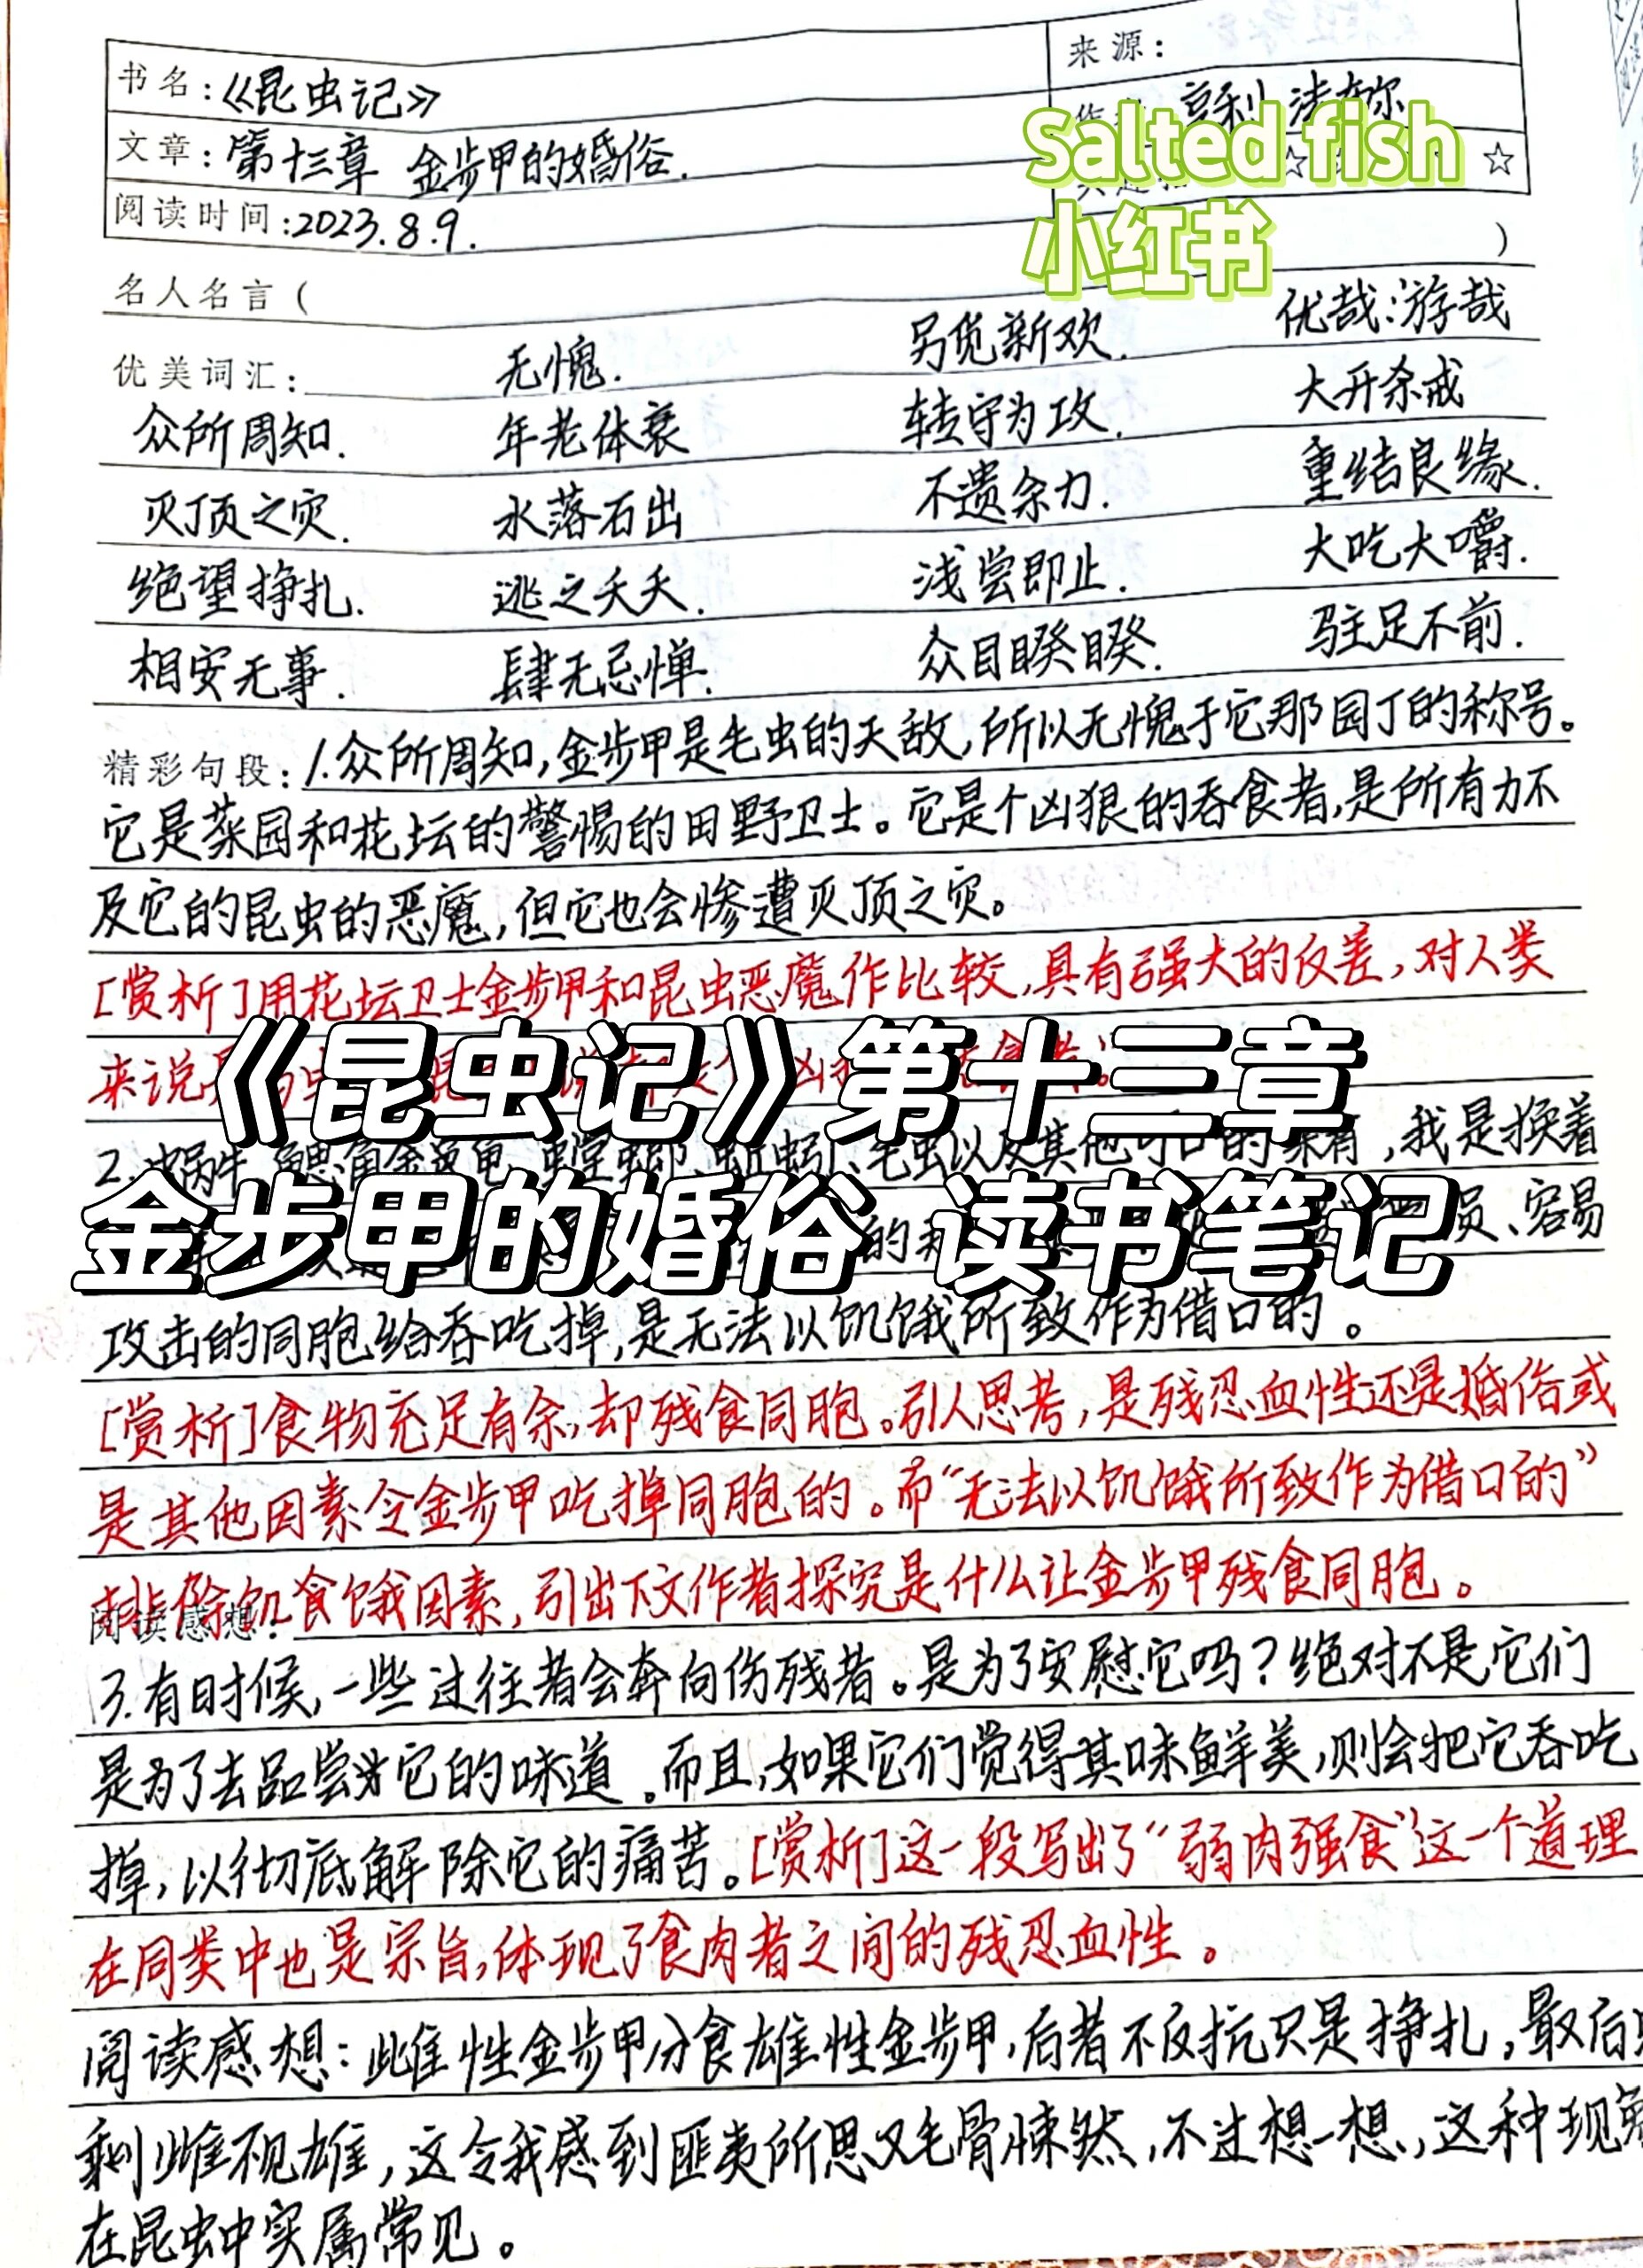 书名:《昆虫记》
来源:
文章:第十三章 金步甲的婚俗.
亨利 法布尔
阅读时间:2023.8.9.
Salted fish
☆ ☆
小红书
名人名言( )
优美词汇: 无愧. 另觅新欢. 优哉游哉
众所周知. 年老体衰 转守为攻. 大开杀戒
灭顶之灾. 水落石出 不遗余力. 重结良缘.
绝望挣扎. 逃之夭夭. 浅尝即止. 大吃大嚼.
相安无事. 肆无忌惮. 众目睽睽. 驻足不前.
精彩句段:1.众所周知,金步甲是毛虫的天敌,所以无愧于它那园丁的称号。
它是菜园和花坛的警惕的田野卫士。它是个凶狠的吞食者,是所有力不
及它的昆虫的恶魔,但它也会惨遭灭顶之灾。
[赏析]用花坛卫士金步甲和昆虫恶魔作比较,具有强大的反差,对人类
来说
《昆虫记》第十三章
2.蜗牛 虫以及其他可口的 ,我是换着
金步甲的婚俗 读书笔记
的 员、容易
攻击的同胞给吞吃掉,是无法以饥饿所致作为借口的。
[赏析]食物充足有余,却残食同胞。引人思考,是残忍血性还是婚俗或
是其他因素令金步甲吃掉同胞的。而“无法以饥饿所致作为借口的”
排除饥食饿因素,引出下文作者探究是什么让金步甲残食同胞。
阅读感想:
3.有时候,一些过往者会奔向伤残者。是为了安慰它吗?绝对不是它们
是为了去品尝它的味道。而且,如果它们觉得其味鲜美,则会把它吞吃
掉,以彻底解除它的痛苦。[赏析]这一段写出了“弱肉强食”这一个道理
在同类中也是宗旨,体现了食肉者之间的残忍血性。
阅读感想:雌性金步甲分食雄性金步甲,后者不反抗只是挣扎,最后
剩雌不见雄,这令我感到匪夷所思又毛骨悚然,不过想一想,这种现象
在昆虫中实属常见。